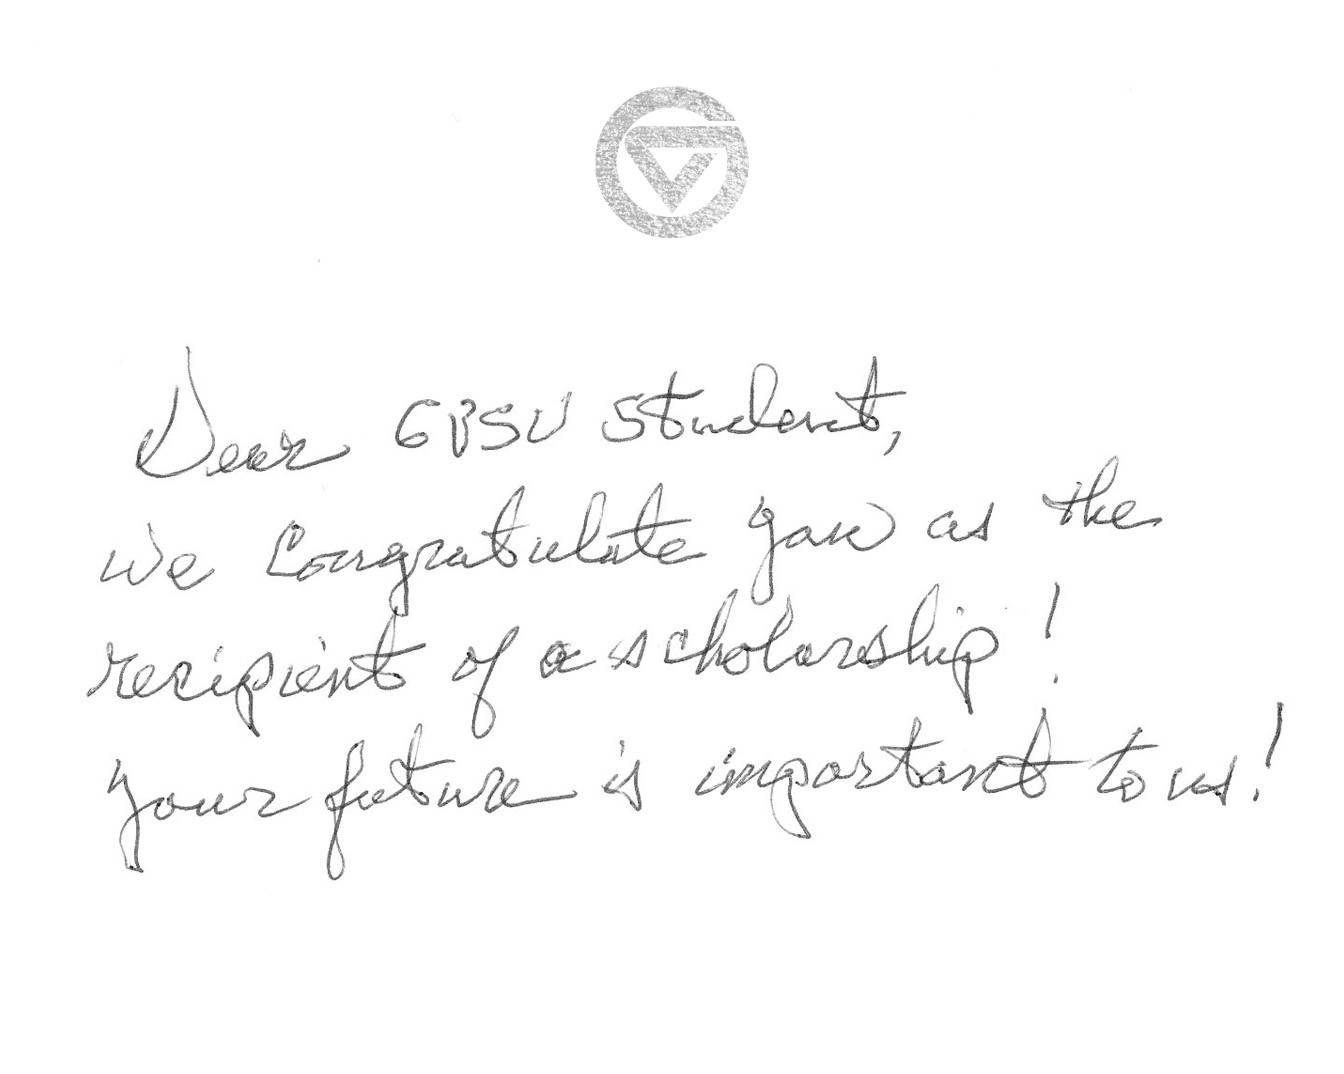 Dear GVSU Student,
We Congratulate you as the
recipient of a scholarship!
Your future is important to us!